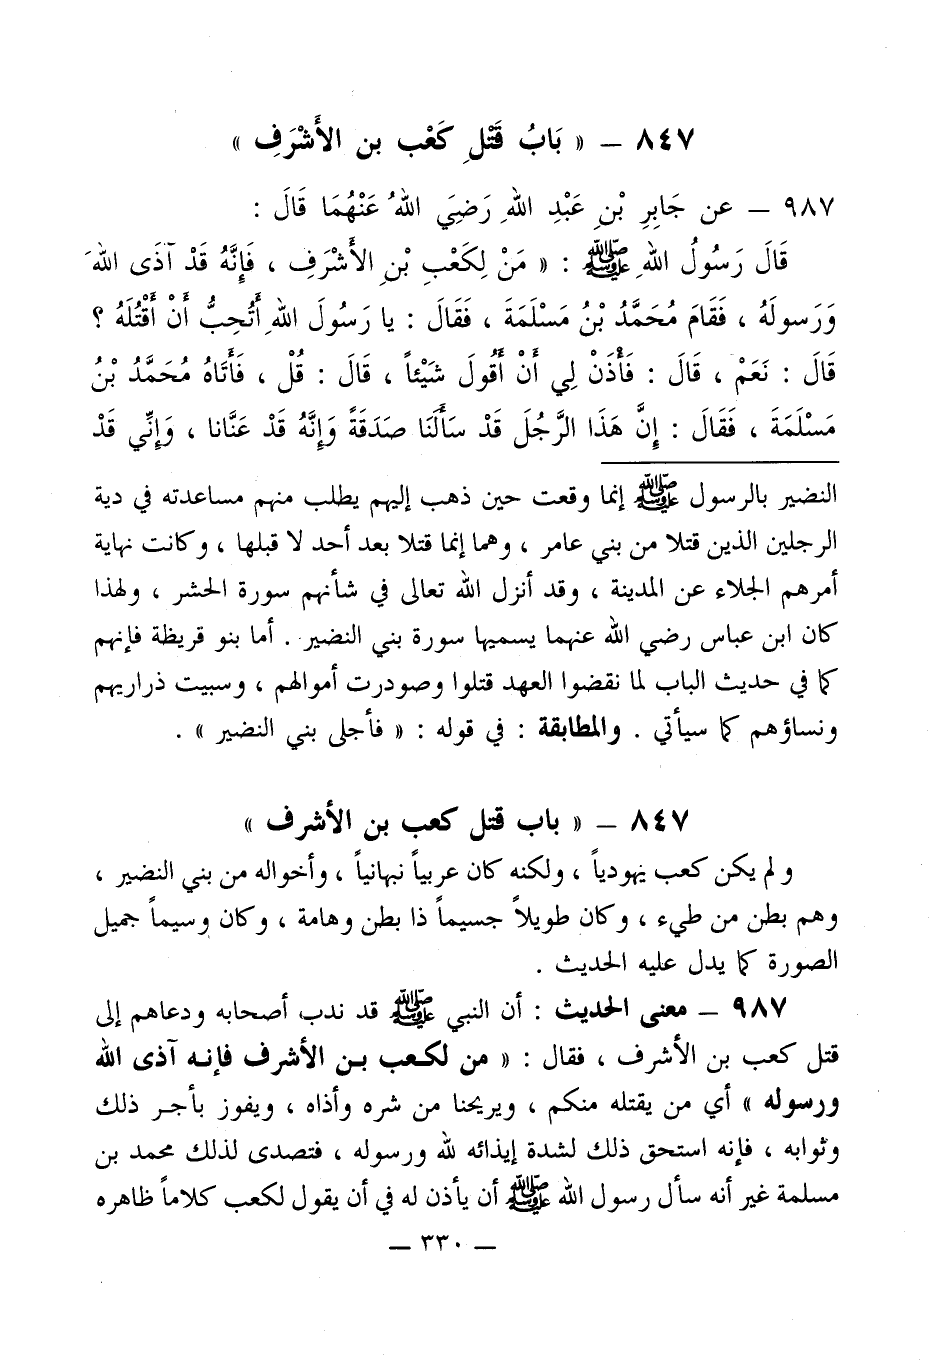 ٨٤٧ – « بَابُ قَتْلِ كَعْب بن الأَشْرَفِ »
٩٨٧ – عن جَابِرِ بْنِ عَبْدِ اللهِ رَضِيَ اللهُ عَنْهُمَا قَالَ :
قَالَ رَسُولُ اللهِ ﷺ : « مَنْ لِكَعْبِ بْنِ الأَشْرَفِ ، فَإِنَّهُ قَدْ آذَى اللهَ
وَرَسولَهُ ، فَقَامَ مُحَمَّدُ بْنُ مَسْلَمَةَ ، فَقَالَ : يا رَسُولَ اللهِ أَتُحِبُّ أَنْ أَقْتُلَهُ ؟
قَالَ : نَعَمْ ، قَالَ : فَأْذَنْ لِي أَنْ أَقُولَ شَيْئاً ، قَالَ : قُلْ ، فَأَتَاهُ مُحَمَّدُ بْنُ
مَسْلَمَةَ ، فَقَالَ : إِنَّ هَذَا الرَّجُلَ قَدْ سَأَلَنَا صَدَقَةً وَإِنَّهُ قَدْ عَنَّانا ، وَإِنِّي قَدْ
النضير بالرسول ﷺ إنما وقعت حين ذهب إليهم يطلب منهم مساعدته في دية
الرجلين الذين قتلا من بني عامر ، وهما إنما قتلا بعد أحد لا قبلها ، وكانت نهاية
أمرهم الجلاء عن المدينة ، وقد أنزل الله تعالى في شأنهم سورة الحشر ، ولهذا
كان ابن عباس رضي الله عنهما يسميها سورة بني النضير . أما بنو قريظة فإنهم
كما في حديث الباب لما نقضوا العهد قتلوا وصودرت أموالهم ، وسبيت ذراريهم
ونساؤهم كما سيأتي . والمطابقة : في قوله : « فأجلى بني النضير » .
٨٤٧ – « باب قتل كعب بن الأشرف »
ولم يكن كعب يهودياً ، ولكنه كان عربياً نبهانياً ، وأخواله من بني النضير ،
وهم بطن من طيء ، وكان طويلاً جسيماً ذا بطن وهامة ، وكان وسيماً جميل
الصورة كما يدل عليه الحديث .
٩٨٧ – معنى الحديث : أن النبي ﷺ قد ندب أصحابه ودعاهم إلى
قتل كعب بن الأشرف ، فقال : « من لكعب بن الأشرف فإنه آذى الله
ورسوله » أي من يقتله منكم ، ويريحنا من شره وأذاه ، ويفوز بأجر ذلك
وثوابه ، فإنه استحق ذلك لشدة إيذائه لله ورسوله ، فتصدى لذلك محمد بن
مسلمة غير أنه سأل رسول الله ﷺ أن يأذن له في أن يقول لكعب كلاماً ظاهره
– ٣٣٠ –